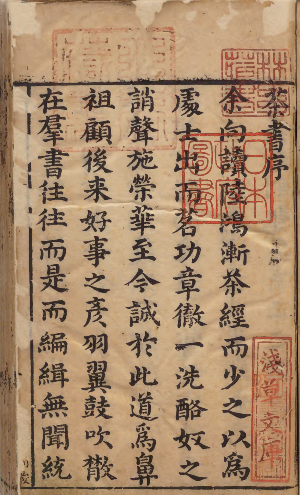 茶書序
余向讀陸鴻漸茶經而少之以爲
處士出而茗功章徹一洗酪奴之
誚聲施榮華至今誠於此道爲鼻
祖顧後来好事之彥羽翼鼓吹散
在羣書往往而是而編緝無聞統
淺草文庫
日本
圖書